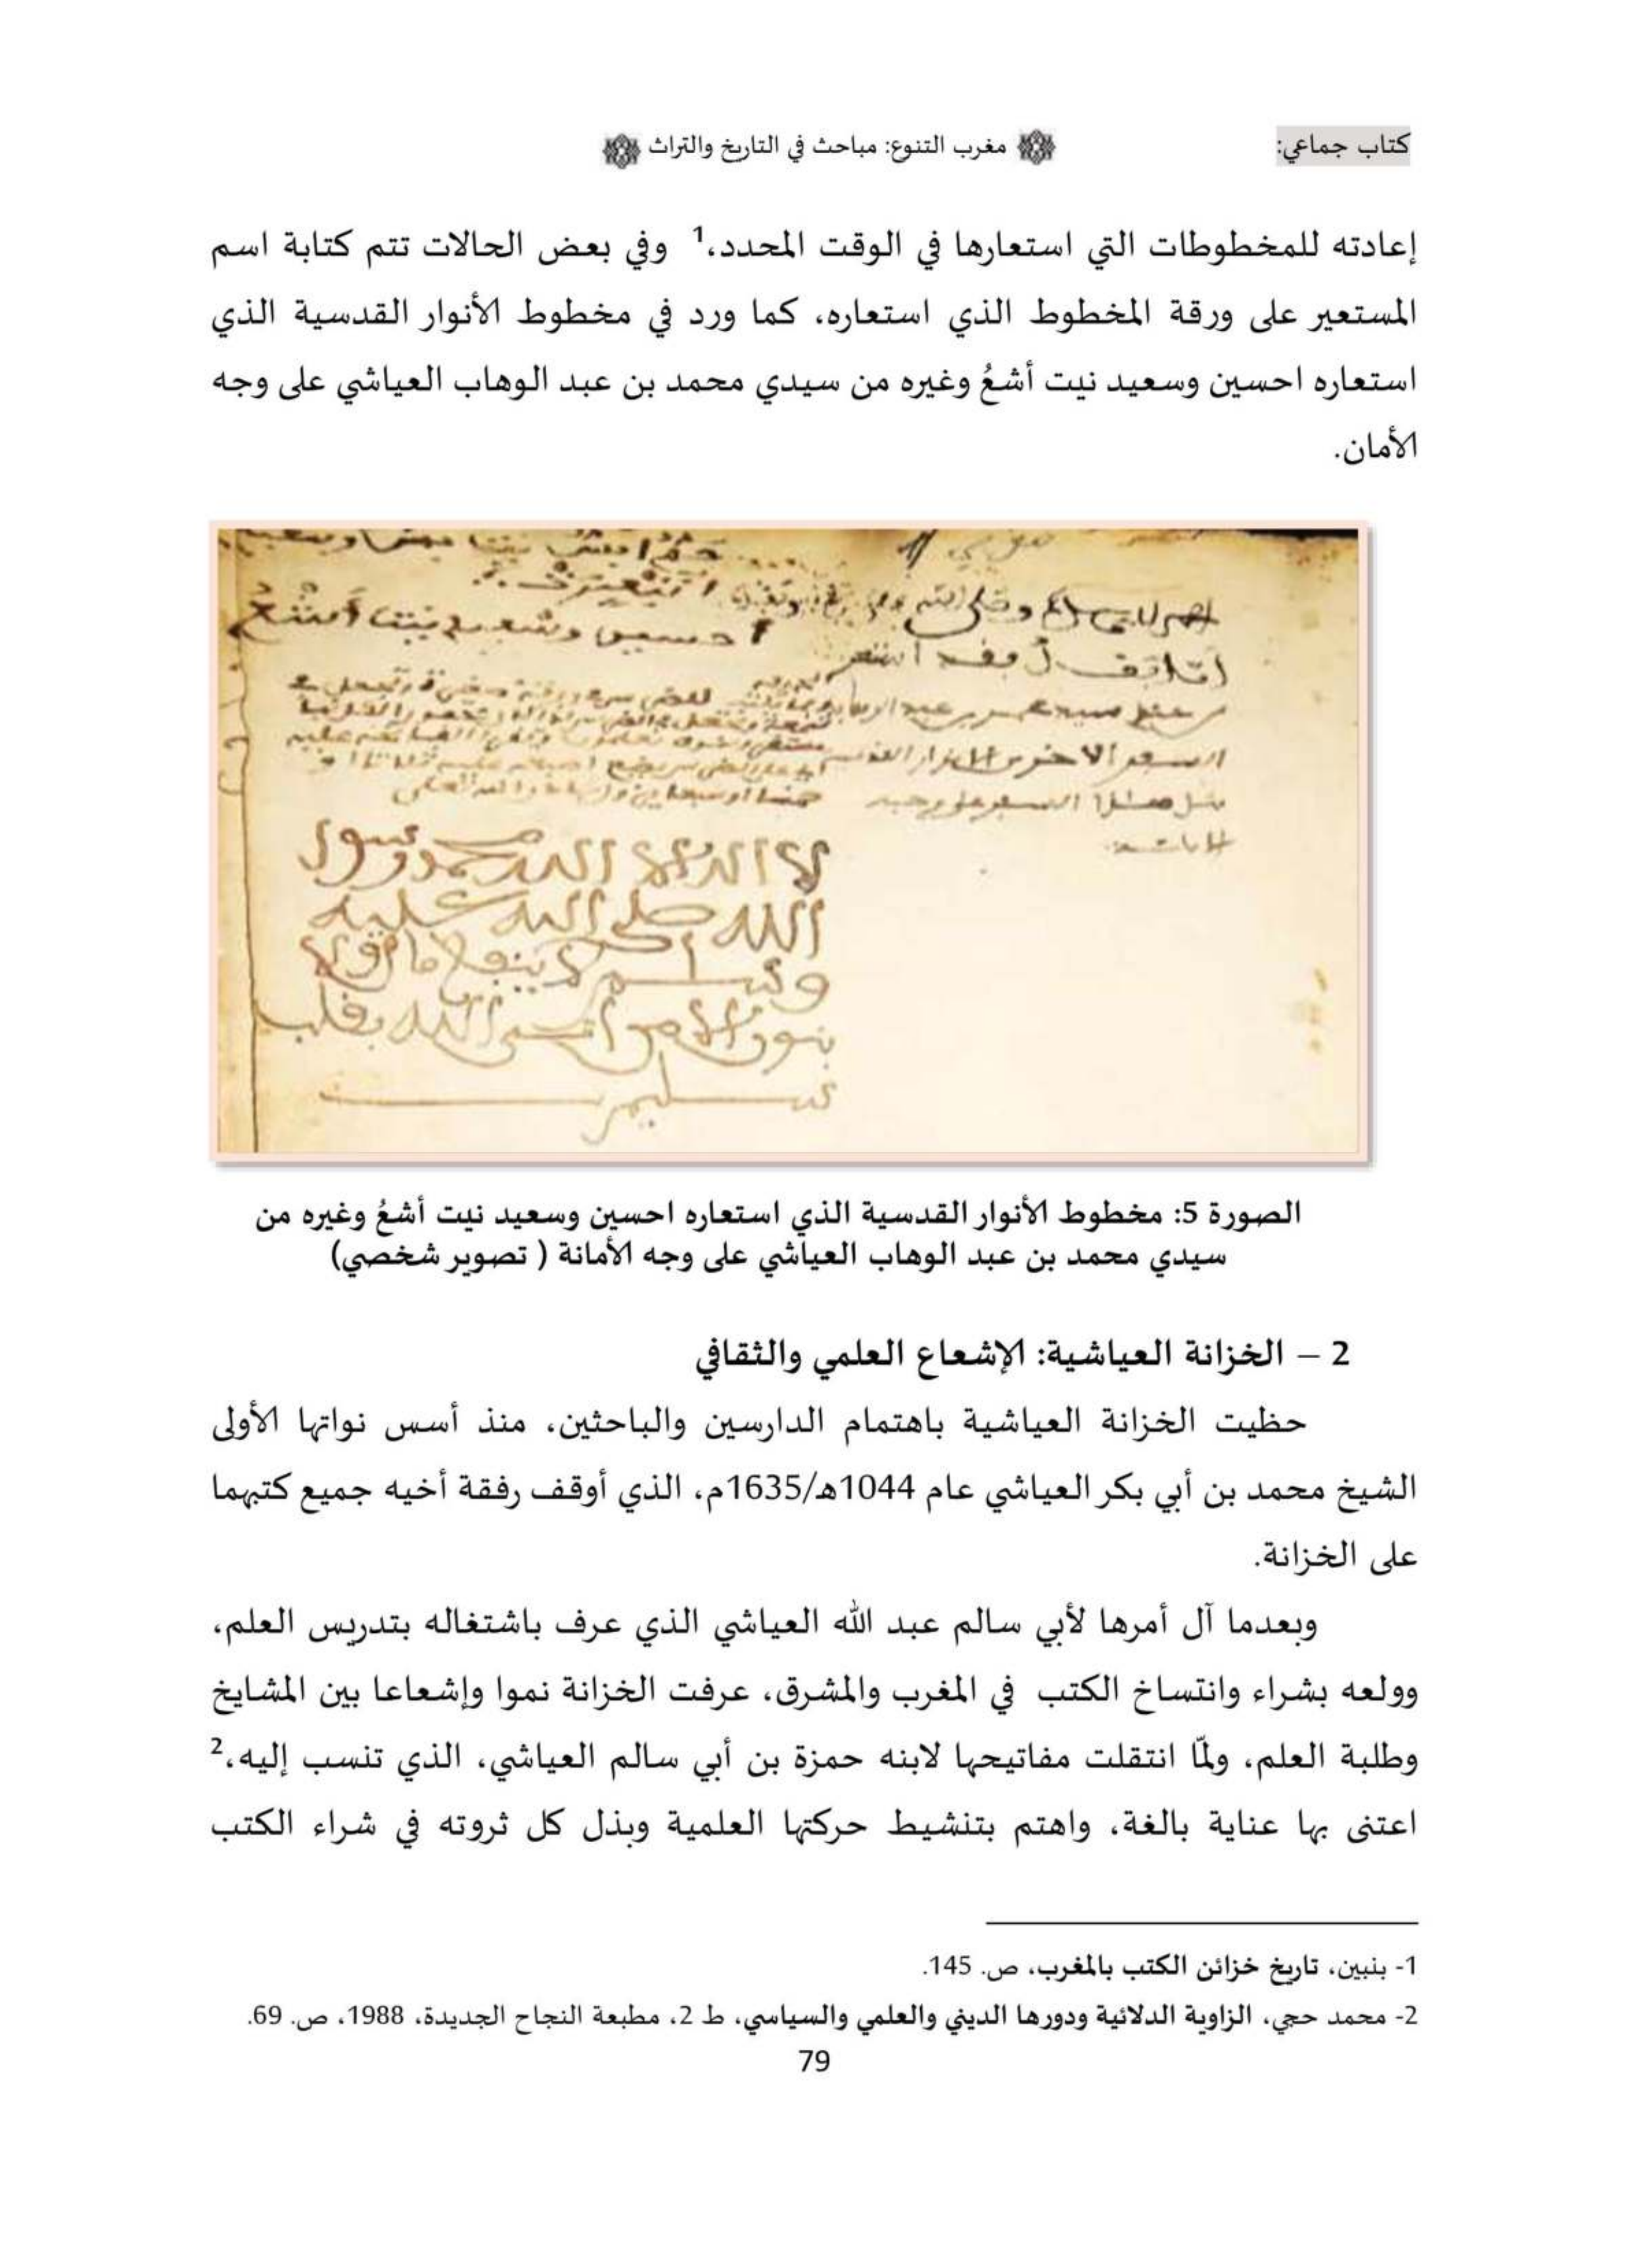 كتاب جماعي: مغرب التنوع: مباحث في التاريخ والتراث
إعادته للمخطوطات التي استعارها في الوقت المحدد،1 وفي بعض الحالات تتم كتابة اسم
المستعير على ورقة المخطوط الذي استعاره، كما ورد في مخطوط الأنوار القدسية الذي
استعاره احسين وسعيد نيت أشعُ وغيره من سيدي محمد بن عبد الوهاب العياشي على وجه
الأمان.
احسين وسعيد نيت أشع
لا اله الا الله محمد رسول
الله صلى الله عليه
الصورة 5: مخطوط الأنوار القدسية الذي استعاره احسين وسعيد نيت أشعُ وغيره من
سيدي محمد بن عبد الوهاب العياشي على وجه الأمانة ( تصوير شخصي)
2 – الخزانة العياشية: الإشعاع العلمي والثقافي
حظيت الخزانة العياشية باهتمام الدارسين والباحثين، منذ أسس نواتها الأولى
الشيخ محمد بن أبي بكر العياشي عام 1044هـ/1635م، الذي أوقف رفقة أخيه جميع كتبهما
على الخزانة.
وبعدما آل أمرها لأبي سالم عبد الله العياشي الذي عرف باشتغاله بتدريس العلم،
وولعه بشراء وانتساخ الكتب في المغرب والمشرق، عرفت الخزانة نموا وإشعاعا بين المشايخ
وطلبة العلم، ولمّا انتقلت مفاتيحها لابنه حمزة بن أبي سالم العياشي، الذي تنسب إليه،2
اعتنى بها عناية بالغة، واهتم بتنشيط حركتها العلمية وبذل كل ثروته في شراء الكتب
1- بنبين، تاريخ خزائن الكتب بالمغرب، ص. 145.
2- محمد حجي، الزاوية الدلائية ودورها الديني والعلمي والسياسي، ط 2، مطبعة النجاح الجديدة، 1988، ص. 69.
79